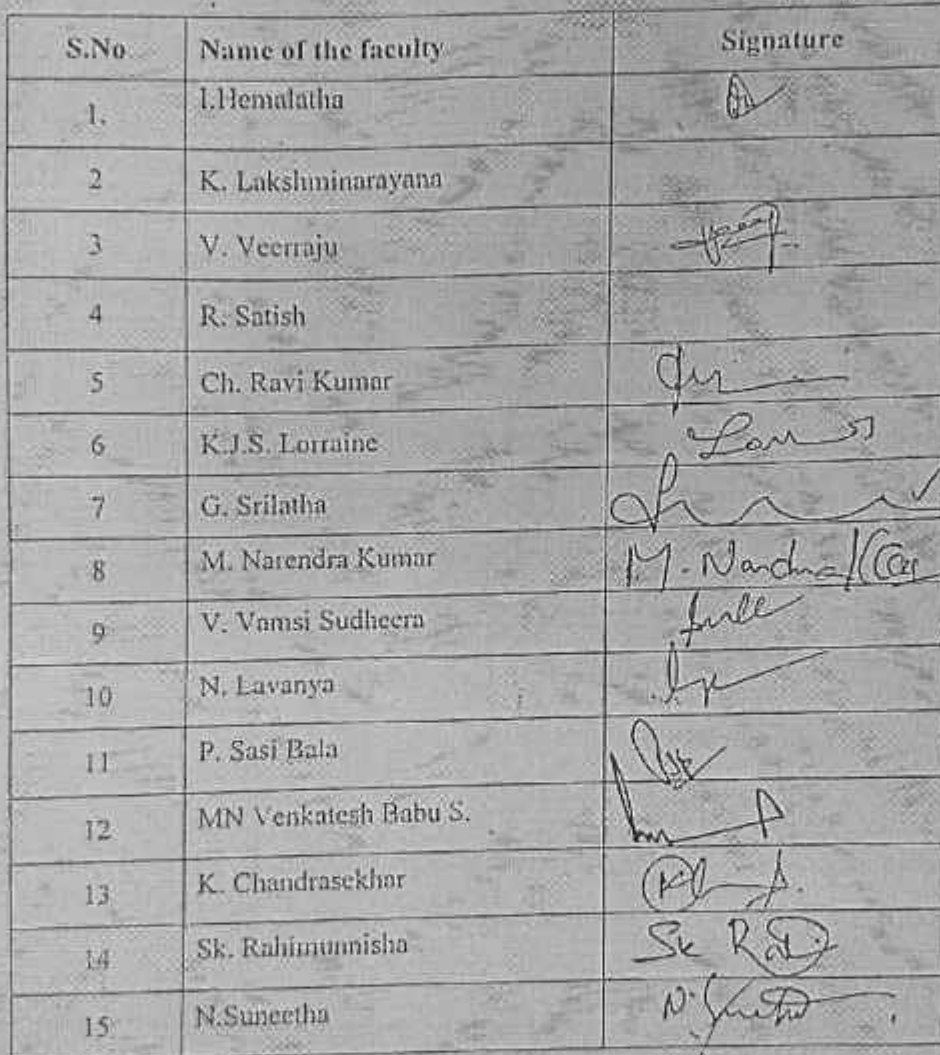 S.No Name of the faculty Signature
1. I.Hemalatha
2 K. Lakshminarayana
3 V. Veerraju
4 R. Satish
5 Ch. Ravi Kumar
6 K.J.S. Lorraine
7 G. Srilatha
8 M. Narendra Kumar
9 V. Vamsi Sudheera
10 N. Lavanya
11 P. Sasi Bala
12 MN Venkatesh Babu S.
13 K. Chandrasekhar
14 Sk. Rahimunnisha Sk
15 N.Suneetha